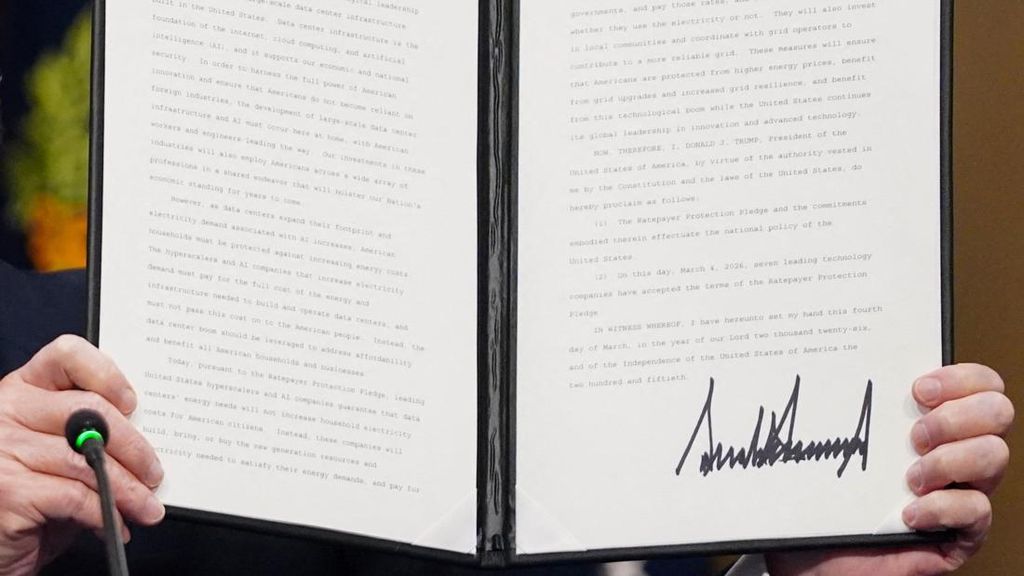 leadership
scale data center infrastructure
built in the United States. Data center infrastructure is the
foundation of the internet, cloud computing, and artificial
intelligence (AI), and it supports our economic and national
security. In order to harness the full power of American
innovation and ensure that Americans do not become reliant on
foreign industries, the development of large-scale data center
infrastructure and AI must occur here at home, with American
workers and engineers leading the way. Our investments in these
industries will also employ Americans across a wide array of
professions in a shared endeavor that will bolster our Nation's
economic standing for years to come.
However, as data centers expand their footprint and
electricity demand associated with AI increases, American
households must be protected against increasing energy costs.
The hyperscalers and AI companies that increase electricity
demand must pay for the full cost of the energy and
infrastructure needed to build and operate data centers, and
must not pass this cost on to the American people. Instead, the
data center boom should be leveraged to address affordability
and benefit all American households and businesses.
Today, pursuant to the Ratepayer Protection Pledge, leading
United States hyperscalers and AI companies guarantee that data
centers' energy needs will not increase household electricity
costs for American citizens. Instead, these companies will
build, bring, or buy the new generation resources and
electricity needed to satisfy their energy demands, and pay for
governments, and pay those rates,
whether they use the electricity or not. They will also invest
in local communities and coordinate with grid operators to
contribute to a more reliable grid. These measures will ensure
that Americans are protected from higher energy prices, benefit
from grid upgrades and increased grid resilience, and benefit
from this technological boom while the United States continues
its global leadership in innovation and advanced technology.
NOW, THEREFORE, I, DONALD J. TRUMP, President of the
United States of America, by virtue of the authority vested in
me by the Constitution and the laws of the United States, do
hereby proclaim as follows:
(1) The Ratepayer Protection Pledge and the commitments
embodied therein effectuate the national policy of the
United States.
(2) On this day, March 4, 2026, seven leading technology
companies have accepted the terms of the Ratepayer Protection
Pledge.
IN WITNESS WHEREOF, I have hereunto set my hand this fourth
day of March, in the year of our Lord two thousand twenty-six,
and of the Independence of the United States of America the
two hundred and fiftieth.